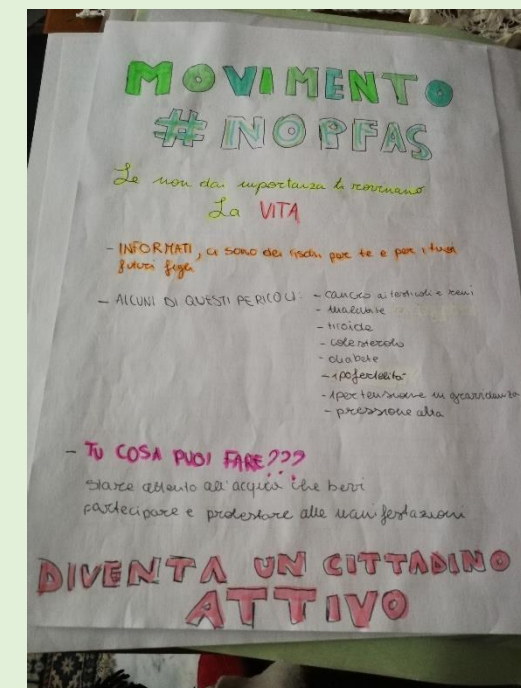 MOVIMENTO
# NOPFAS
Se non dai importanza ti rovinano
La VITA
- INFORMATI, ci sono dei rischi per te e per i tuoi
futuri figli
- ALCUNI DI QUESTI PERICOLI: - cancro ai testicoli e reni
- malattie
- tiroide
- colesterolo
- diabete
- ipofertilità
- ipertensione in gravidanza
- pressione alta
- TU COSA PUOI FARE???
stare attento all'acqua che bevi
partecipare e protestare alle manifestazioni
DIVENTA UN CITTADINO
ATTIVO